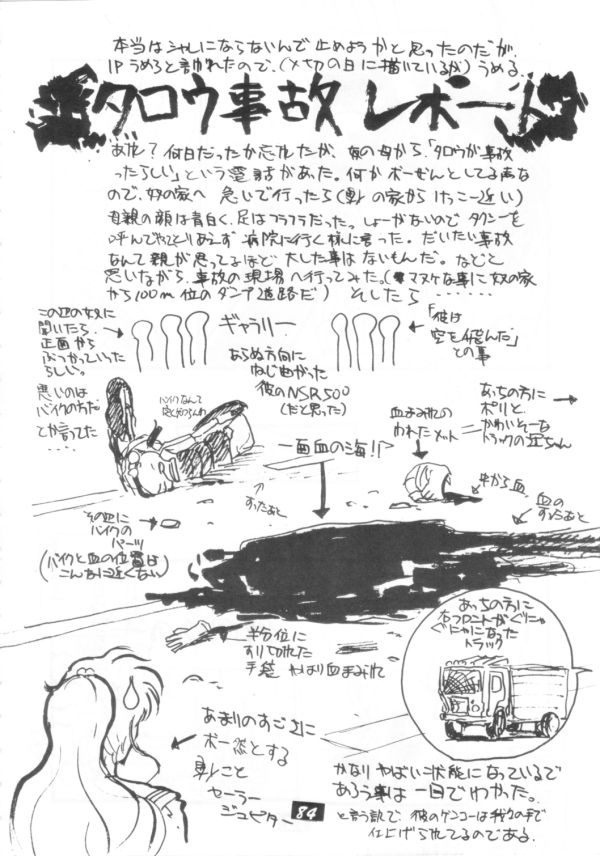 本当はシャレにならないんで止めようかと思ったのだが、
1Pうめろと言われたので、(〆切の日に描いているが)うめる。
タロウ事故レポート
あれ?何日だったか忘れたが、奴の母から、「タロウが事故
ったらしい」という電話があった。何かボーぜんとしてる声な
ので、奴の家へ急いで行ったら(の家からけっこー近い)
母親の顔は青白く、足はフラフラだった。しょーがないのでタクシーを
呼んでやってとりあえず病院に行く様に言った。だいたい事故
なんて親が思ってるほど大した事はないもんだ。などと
思いながら、事故の現場へ行ってみた。(マヌケな事に奴の家
から100m位のダンプ道路だ) そしたら……
この辺の奴に
聞いたら、
正面から
ぶつかっていった
らしい。
悪いのは
バイクの方だ
とか言ってた
....
ギャラリー
「彼は
空を飛んだ」
との事
あらぬ方向に
ねじ曲がった
彼のNSR500
(だと思った)
バイクなんて
血まみれの
われたメット
あっちの方に
ポリと
かわいそーな
トラックの運ちゃん
一面血の海!!
中から血
血の
すったあと
すったあと
その辺に
バイクの
パーツ
(バイクと血の位置は
こんなに近くない)
半分位に
すり切れた
手袋 やはり血まみれ
あっちの方に
右フロントがぐにゃ
ぐにゃになった
トラック
あまりのすごさに
ボー然とする
こと
セーラー
ジュピター
かなりやばい状態になっているで
あろう事は一目でわかった。
と言う訳で、彼のゲンコーは我々の手で
仕上げられてるのである。
84